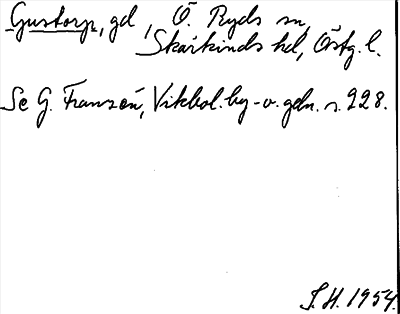 Gustorp, gd, Ö. Ryds sn,
Skärkinds hd, Östg. l.
Se G. Franzén, Vikbol. by- o. gdn. s. 228.
S.H. 1954.